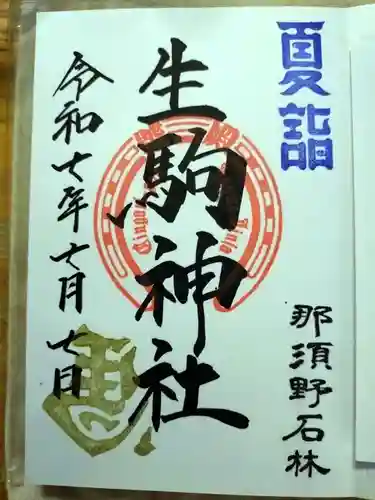 夏詣
生駒神社
令和七年七月七日
那須野石林